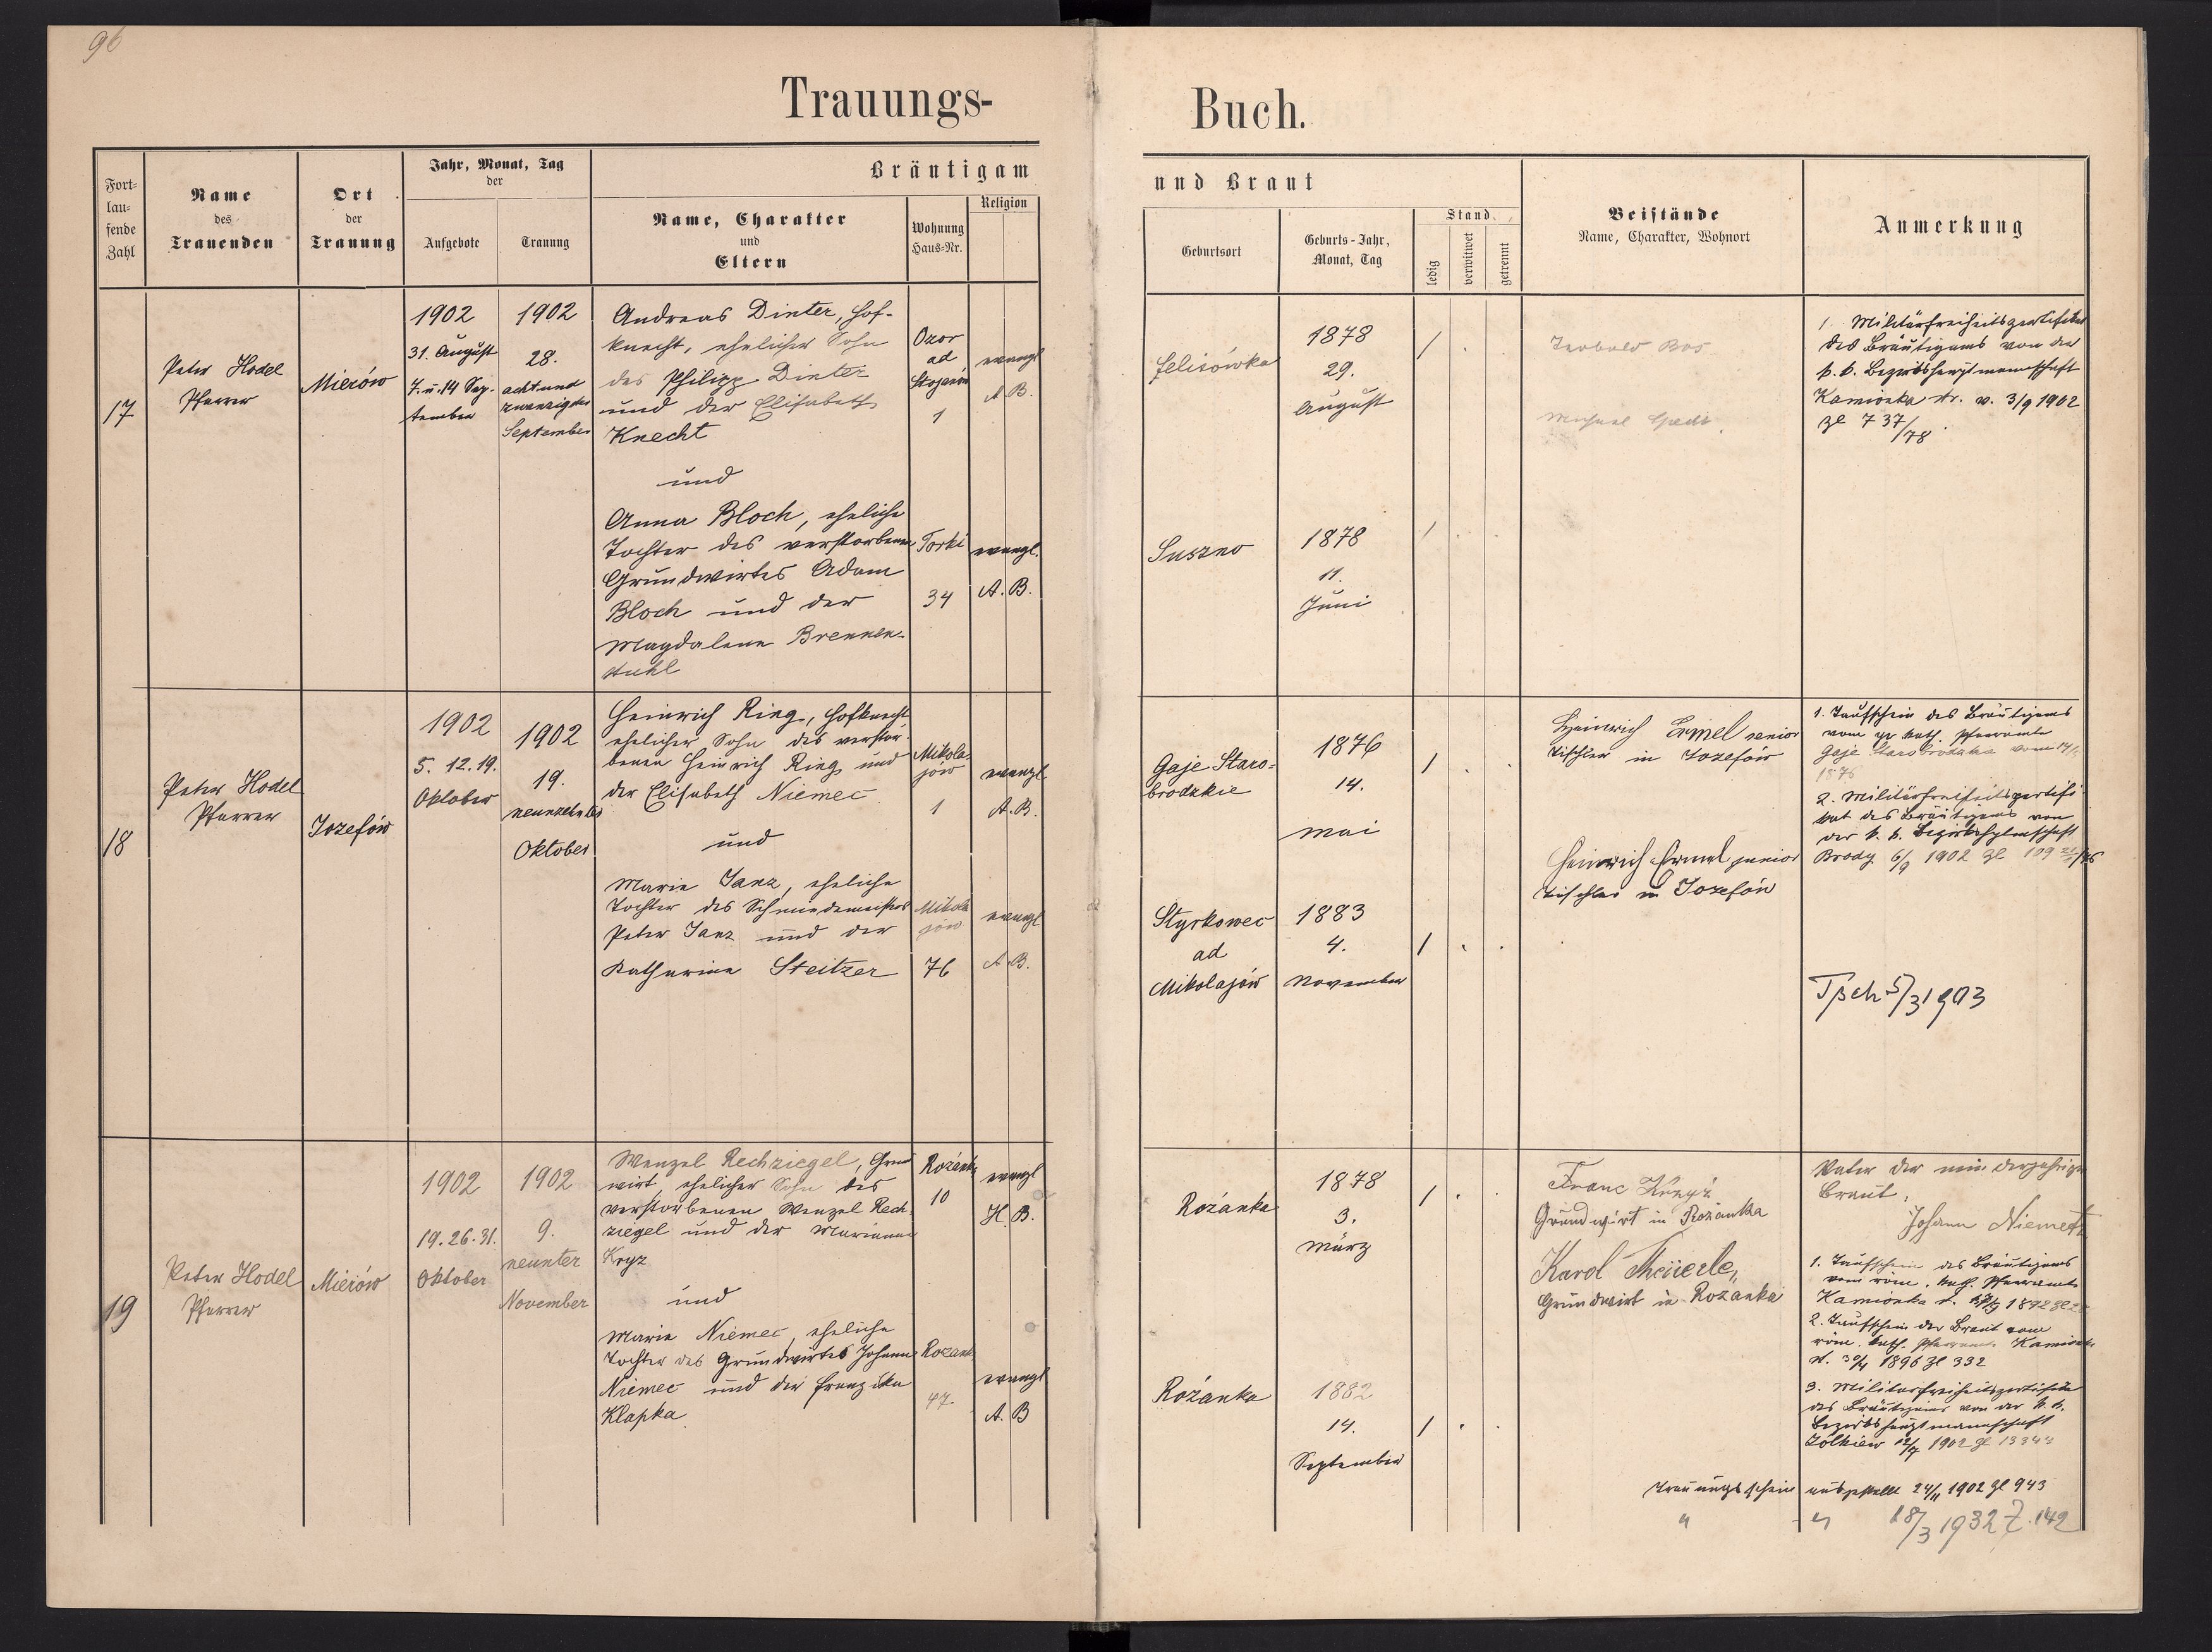 96
Trauungs-
Buch.
Fort-
lau-
fende
Zahl
Name
des
Trauenden
Ort
der
Trauung
Jahr, Monat, Tag
der
Aufgebote
Trauung
Bräutigam
Name, Charakter
und
Eltern
Wohnung
Haus-Nr.
Religion
und Braut
Geburtsort
Geburts-Jahr,
Monat, Tag
Stand
ledig
verwitwet
getrennt
Beistände
Name, Charakter, Wohnort
Anmerkung
17
Peter Hodel
Pfarrer
Mierów
1902
31. August
7. u. 14 Sep-
tember
1902
28.
achtund
zwanzigster
September
Andreas Dinter, Hof-
knecht, ehelicher Sohn
des Philipp Dinter
und der Elisabeth
Knecht
und
Anna Bloch, eheliche
Tochter des verstorbenen
Grundwirtes Adam
Bloch und der
Magdalena Brennen-
stuhl
Ozor
ad
Stojanów
1
evangl
A. B.
Torki
34
evangl.
A. B.
Felisówka
1878
29.
August
/
Suszno
1878
11.
Juni
/
1. Militärfreiheitszertifikat
des Bräutigams von der
k. k. Bezirkshauptmannschaft
Kamionka str. v. 3/9 1902
Zl 737/78
18
Peter Hodel
Pfarrer
Jozefów
1902
5. 12. 19.
Oktober
1902
19.
neunzehnter
Oktober
Heinrich Ring, Hofknecht
ehelicher Sohn des verstor-
benen Heinrich Ring und
der Elisabeth Niemec
und
Marie Janz, eheliche
Tochter des Schmiedemeisters
Peter Janz und der
Katharina Steitzer
Mikola-
jów
1
evangl.
A. B.
Mikola
jów
76
evangl
A. B.
Gaje Staro-
brodzkie
1876
14.
Mai
/
Styrkowec
ad
Mikolajów
1883
4.
November
/
Heinrich Ermel senior
Tischler in Jozefów
Heinrich Ermel junior
Tischler in Jozefów
1. Taufschein des Bräutigams
vom gr kath. Pfarramte
Gaje Starobrodzkie vom
1876
2. Militärfreiheitszertifi-
kat des Bräutigams von
der k. k. Bezirkshptmschaft
Brody 6/9 1902 Zl
Tsch 5/3 1903
19
Peter Hodel
Pfarrer
Mierów
1902
19. 26. 31.
Oktober
1902
9.
neunter
November
Wenzel Rechziegel, Grund
wirt, ehelicher Sohn des
verstorbenen Wenzel Rech-
ziegel und der Marianna
Kryz
und
Marie Niemec, eheliche
Tochter des Grundwirtes Johann
Niemec und der Franziska
Klapka
Rozanka
10
evangl
H. B.
Rozanka
47.
evangl
A. B
Rozánka
1878
3.
März
/
Rozánka
1882
14.
September
/
Franc
Grundwirt in Rozanka
Karol
Grundwirt in Rozanka
Vater der minderjährigen
Braut:
Johann Niemetz
1. Taufschein des Bräutigams
vom röm. kath. Pfarramte
Kamionka
2. Taufschein der Braut vom
röm. kath. Pfarramte Kamionka
1896 Zl 332
3. Militärfreiheitszertifikat
des Bräutigams von der k. k.
Bezirkshauptmannschaft
Zolkiew 12/7 1902 Zl
Trauungsschein ausgestellt 24/11 1902 Zl 943
" " 18/3 1932 Z. 142